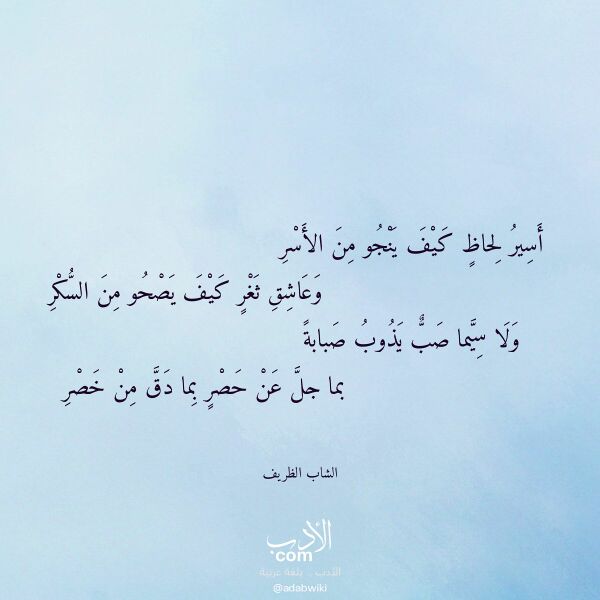 أَسِيرُ لِحاظٍ كَيْفَ يَنْجُو مِنَ الأَسْرِ
وَعَاشِقِ ثَغْرٍ كَيْفَ يَصْحُو مِنَ السُّكْرِ
وَلَا سِيَّما صَبٌّ يَذُوبُ صَبابةً
بما جلَّ عَنْ حَصْرٍ بِما دَقَّ مِنْ خَصْرِ
الشاب الظريف
الأدب
com
الأدب .. بلغة عربية
@adabwiki